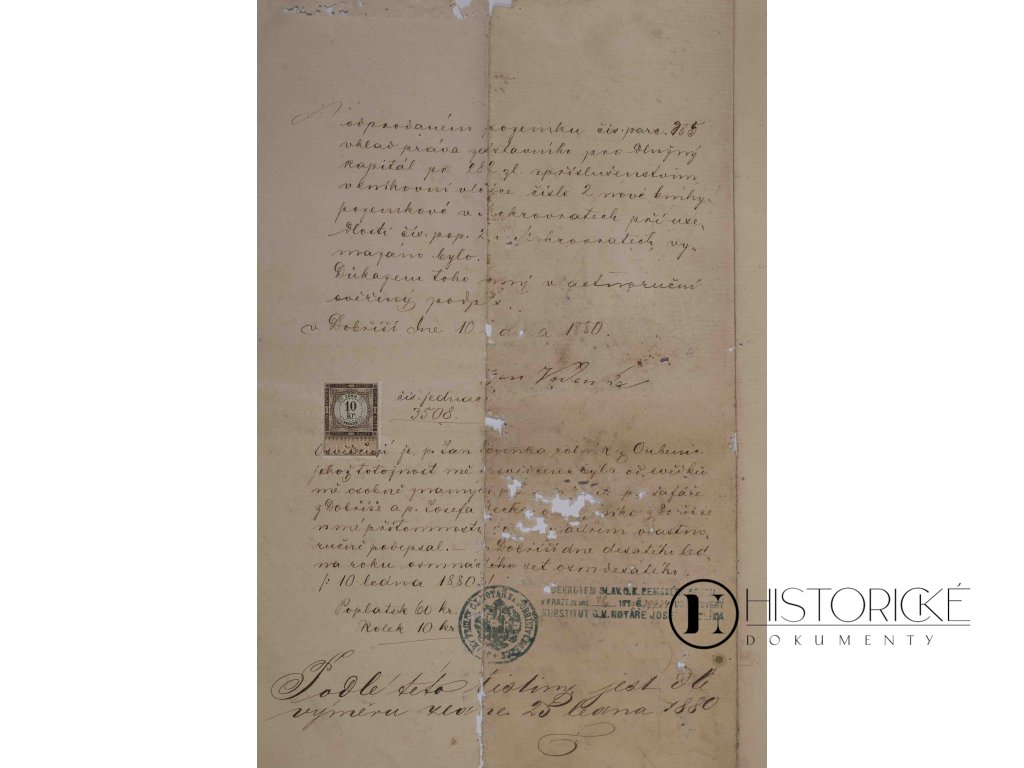 odprodaném pozemku čís. parc. 985
vklad práva zástavního pro dlužný
kapitál pr 282 zl. s příslušenstvím
v knihovní vložce číslo 2 nové knihy
pozemkové v Mokrovratech při use,
dlosti čís. pop. 2 v Mokrovratech vy„
mazáno bylo.
Důkazem toho v astnoruční
ověřený podp s.
v Dobříši dne 10 ledna 1880.
Jan Voden ka
čís. jednací
3508.
10
kr.
Osvědčuji že p. Jan Vodenka rolník z
jehož totožnost mě osvědčena byla od svědků
mě osobně známých šafáře
z Dobříše a p. Josefa z Dobříše
v mé přítomnosti vlastno„
ručně podepsal. — Dobříši dne desátého led„
na roku osmnáctého set osmdesátého.
/: 10 ledna 1880 :/
Poplatek 60 kr.
Kolek 10 kr
DEKRETEM SLAV. C. K. ZEMSKÉHO
V PRAZE ZE DNE
SUBSTITUT C. K. NOTÁŘE JOS.
Podlé této listiny jest dle
výměru ze dne 25 ledna 1880
HISTORICKÉ
DOKUMENTY